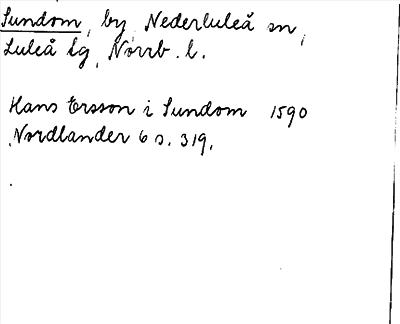 Sundom, by, Nederluleå sn,
Luleå tg, Norrb. l.
Hans Ersson i Sundom 1590
Nordlander 6 s. 319.